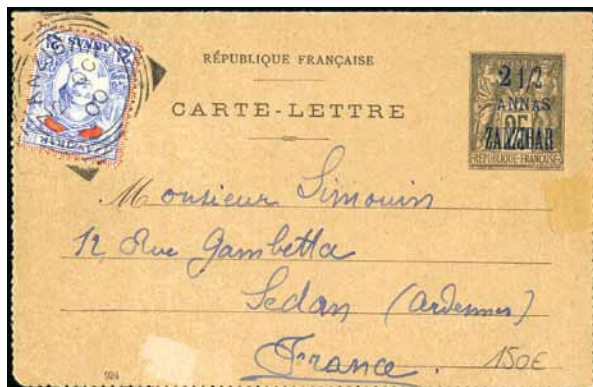 RÉPUBLIQUE FRANÇAISE
CARTE-LETTRE
2 1/2
ANNAS
25
ZANZIBAR
RÉPUBLIQUE FRANÇAISE
ANNAS
ZANZIBAR
OC
00
Monsieur Simouin
12 Rue Gambetta
Sedan (Ardennes)
France.
150€
924